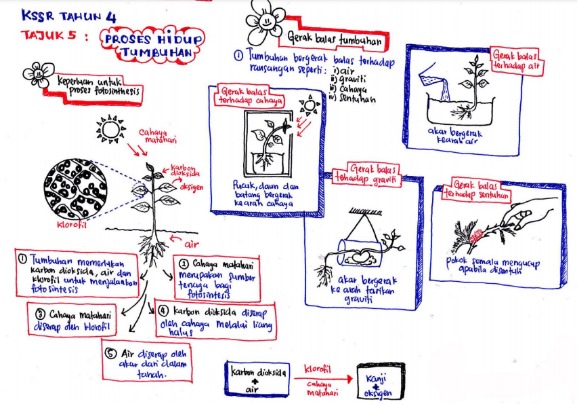 KSSR TAHUN 4
TAJUK 5 :
PROSES HIDUP
TUMBUHAN
Keperluan untuk
proses fotosintesis
Cahaya
matahari
karbon
dioksida
oksigen
klorofil
air
① Tumbuhan memerlukan
karbon dioksida, air dan
klorofil untuk menjalankan
fotosintesis
② Cahaya matahari
merupakan sumber
tenaga bagi
fotosintesis
③ Cahaya matahari
diserap oleh klorofil
④ Karbon dioksida diserap
oleh cahaya melalui liang
halus
⑤ Air diserap oleh
akar dari dalam
tanah.
Gerak balas tumbuhan
① Tumbuhan bergerak balas terhadap
rangsangan seperti : i) air
ii) graviti
iii) cahaya
iv) sentuhan
Gerak balas
terhadap cahaya
Pucuk, daun dan
batang bergerak
ke arah cahaya
Gerak balas
terhadap air
akar bergerak
kearah air
Gerak balas
tehadap graviti
akar bergerak
ke arah tarikan
graviti
Gerak balas
terhadap sentuhan
pokok semalu menguncup
apabila disentuh
karbon dioksida
+
air
klorofil
cahaya
matahari
Kanji
+
oksigen